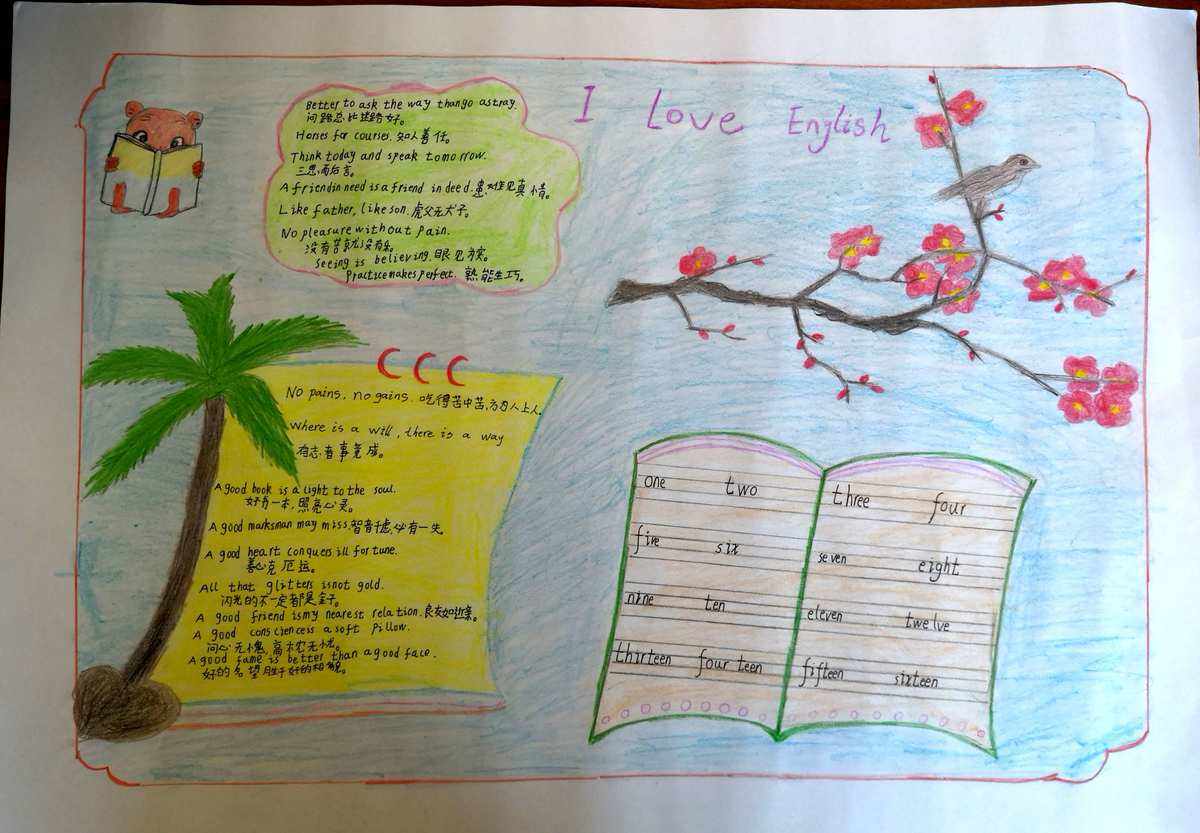 I Love English
Better to ask the way than go astray.
问路总比迷路好。
Horses for courses. 知人善任。
Think today and speak tomorrow.
三思而后言。
A friend in need is a friend in deed. 患难见真情。
Like father, like son. 虎父无犬子。
No pleasure without pain.
没有苦就没有乐。
Seeing is believing. 眼见为实。
Practice makes perfect. 熟能生巧。
No pains, no gains. 吃得苦中苦,方为人上人.
Where is a will, there is a way
有志者事竟成。
A good book is a light to the soul.
好书一本,照亮心灵。
A good marksman may miss. 智者千虑,必有一失
A good heart conquers ill fortune.
善心克厄运。
All that glitters is not gold.
闪光的不一定都是金子。
A good friend is my nearest relation. 良友如近亲。
A good conscience is a soft pillow.
问心无愧,高枕无忧。
A good fame is better than a good face.
好的名望胜于好的相貌。
one two
five six
nine ten
thirteen four teen
three four
seven eight
eleven twelve
fifteen sixteen